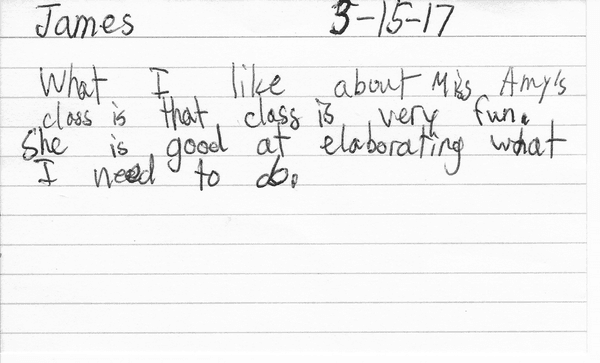 James 3-15-17
What I like about Miss Amy's
class is that class is very fun.
She is good at elaborating what
I need to do.